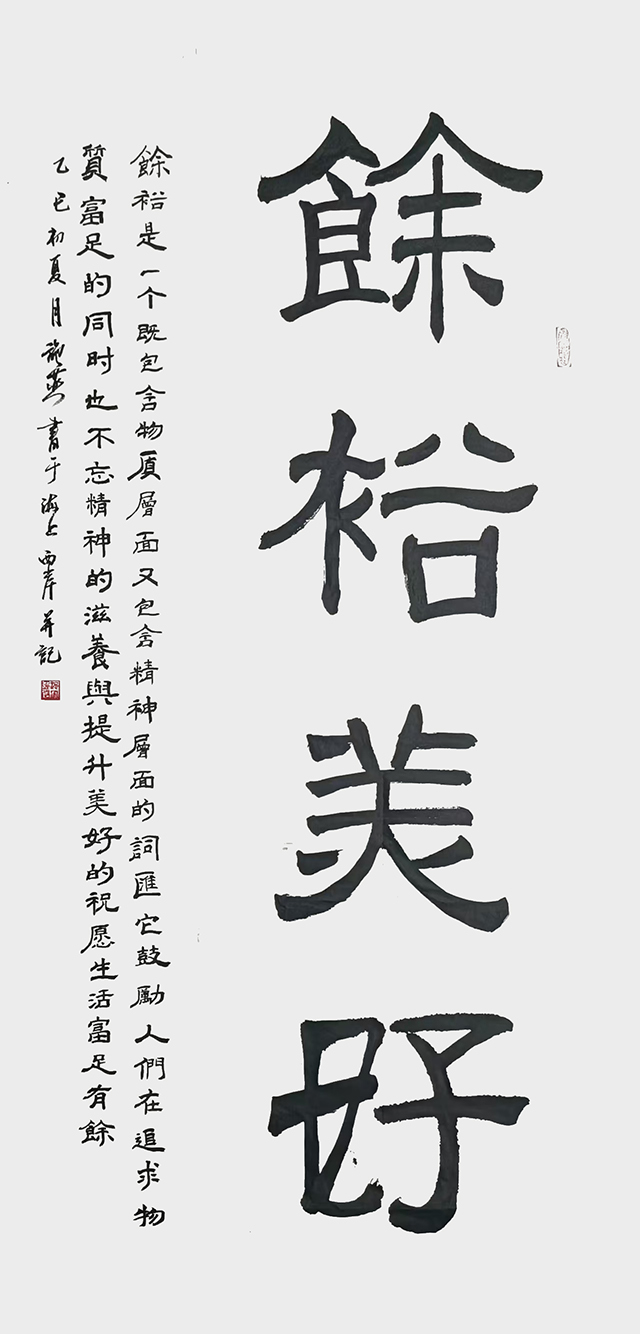 餘裕美好
餘裕是一个既包含物质層面又包含精神層面的詞匯它鼓勵人們在追求物
質富足的同时也不忘精神的滋養與提升美好的祝愿生活富足有餘
乙巳初夏月書于海上西岸并記